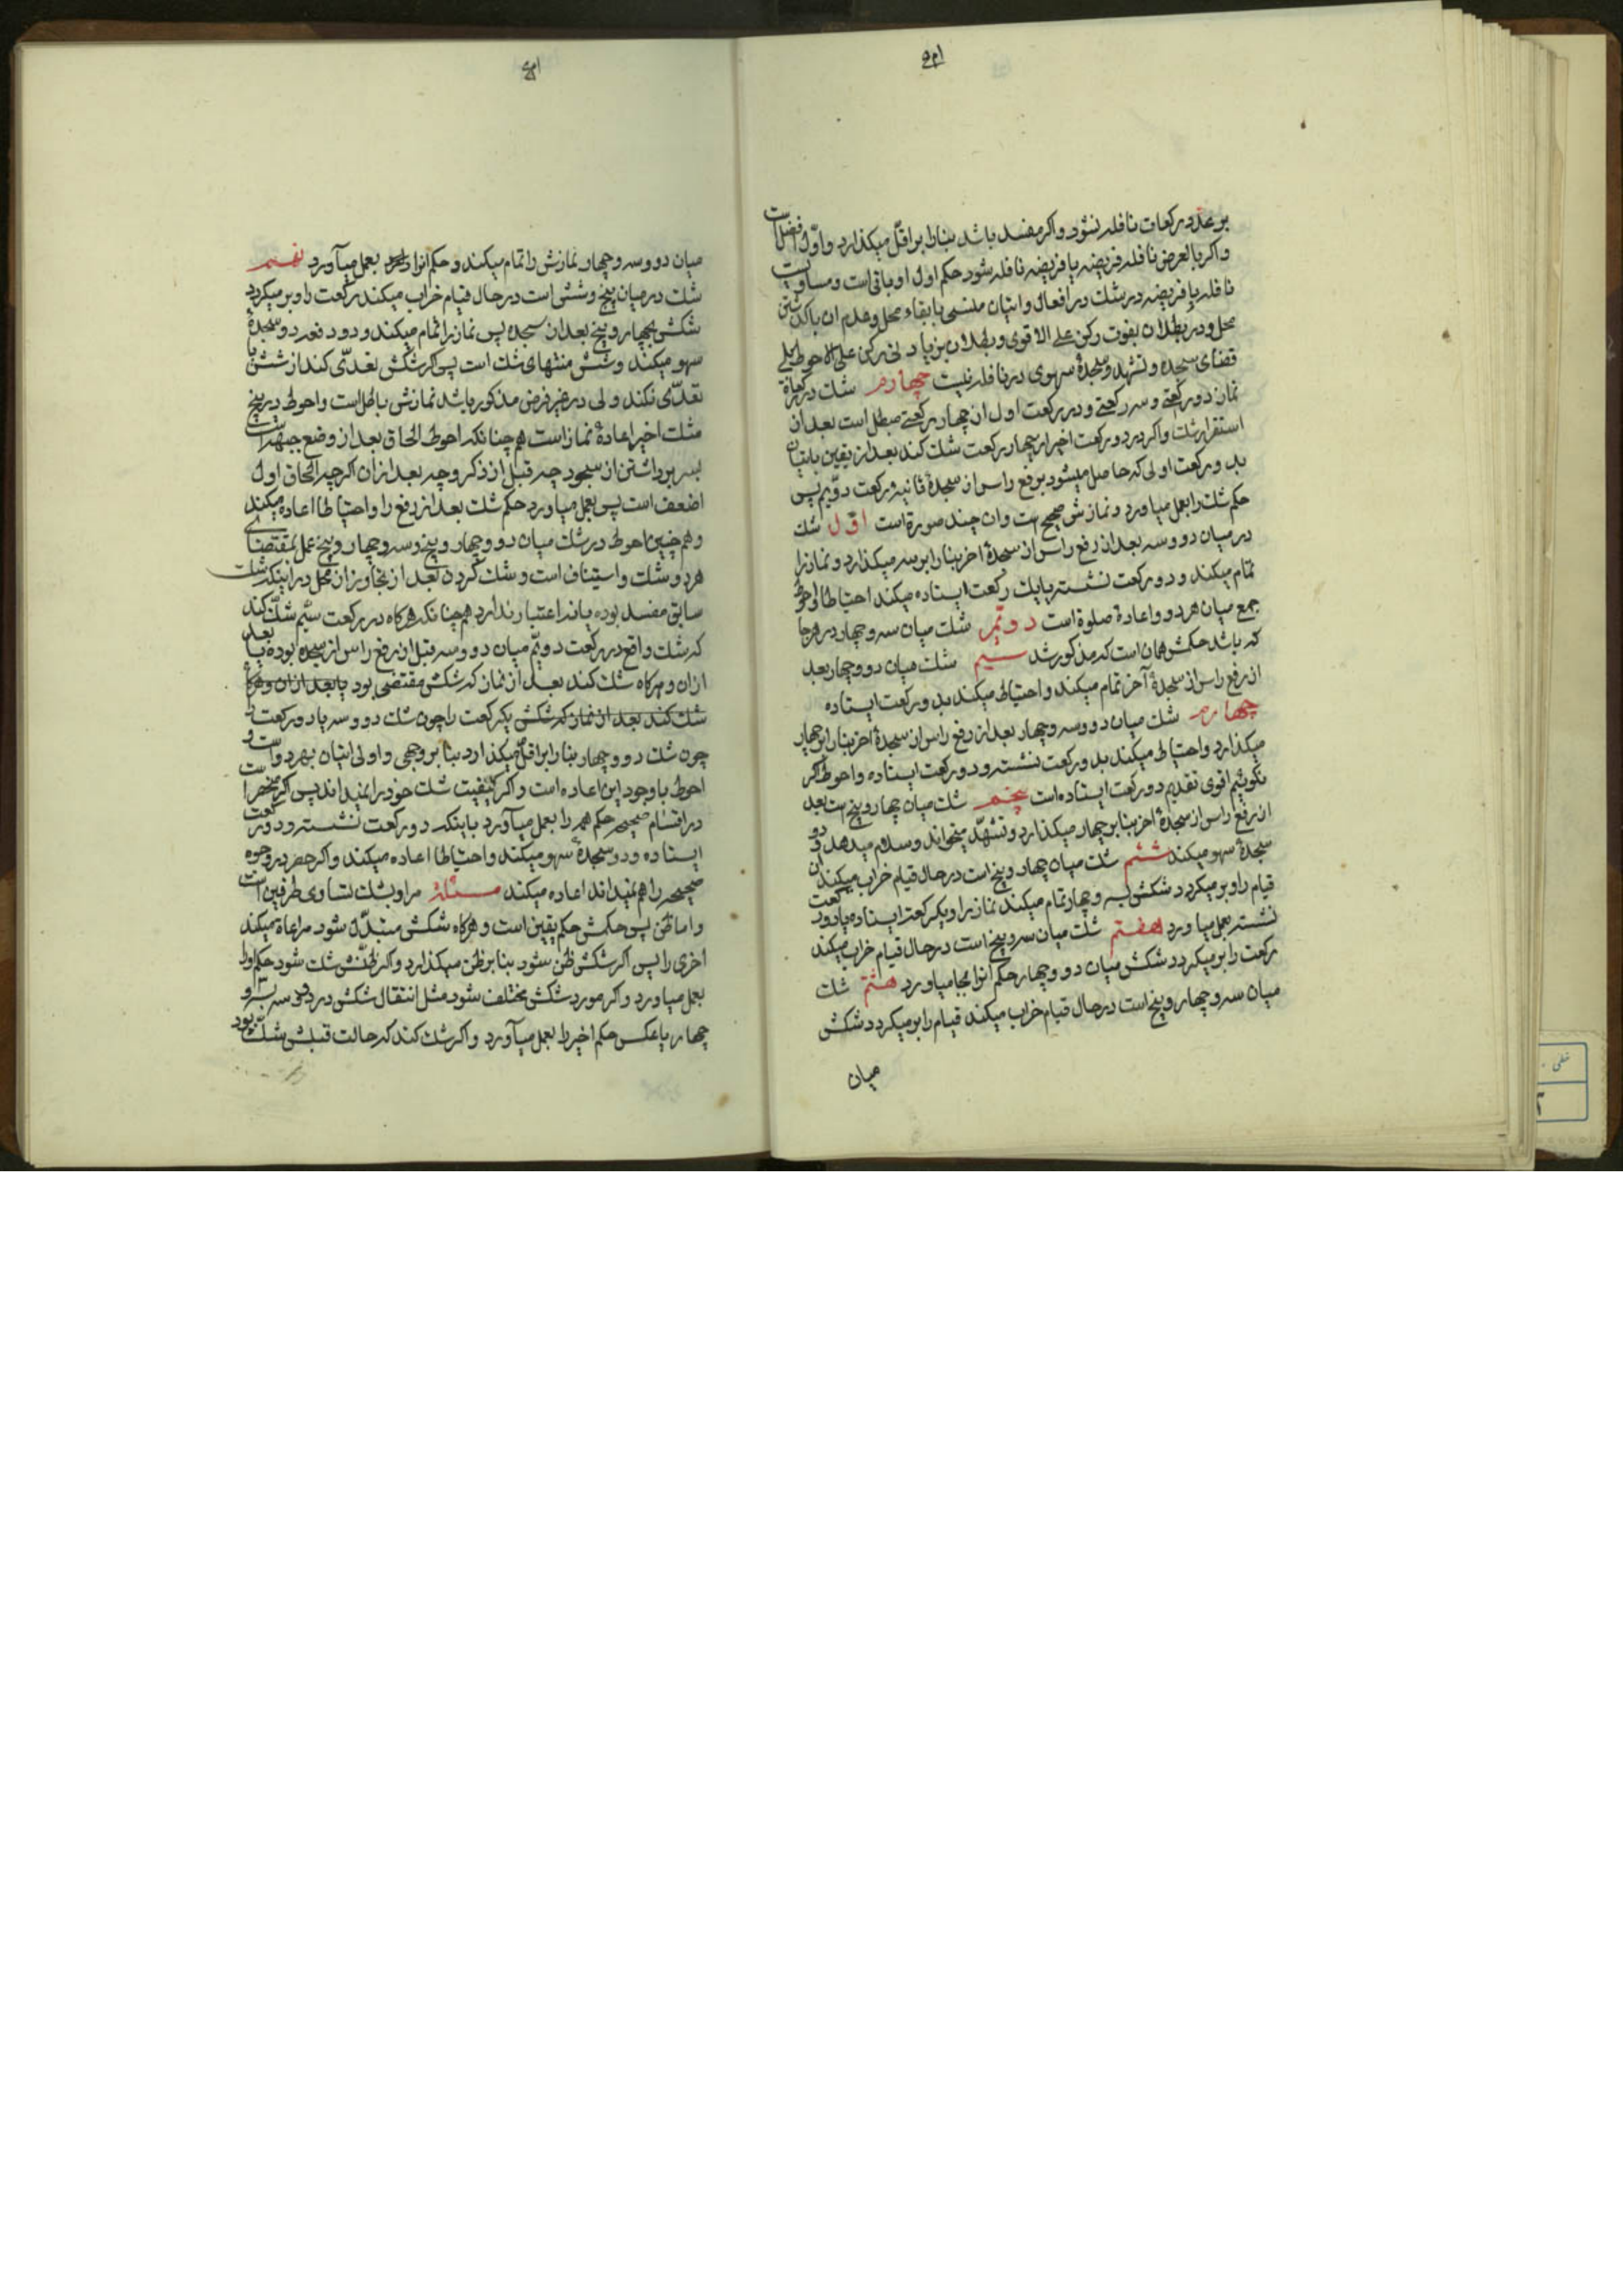 بر عدد رکعات نافله نشود و اکر مفسد باشد بنا را بر اقل میکذارد و اول افضل است
و اکر بالعرض نافله فریضه یا فریضه نافله شود حکم اول او باقی است و مساویست
نافله با فریضه در شک در افعال و اتیان منسی با بقاء محل و عدم ان با کذشتن
محل و در بطلان بفوت رکن علی الاقوی و بطلان بزیادتی رکن علی الاحوط بلی
قضای سجده و تشهد و سجدهٔ سهوی در نافله نیست چهارم شک در رکعات
نماز دو رکعتی و سه رکعتی و در دو رکعت اول از چهار رکعتی مبطل است بعد از
استقرار شک و اکر در دو رکعت اخیر از چهار رکعت شک کند بعد از یقین باتیان
بدو رکعت اولی که حاصل میشود برفع راس از سجدهٔ ثانیه رکعت دویم پس
حکم شک را بعمل میاورد و نمازش صحیح است و ان چند صورة است اول شک
در میان دو و سه بعد از رفع راس از سجدهٔ اخر بنا را بر سه میکذارد و نماز را
تمام میکند و دو رکعت نشسته یا یک رکعت ایستاده میکند احتیاطا و احوط
جمع میان هر دو و اعادة صلوة است دویم شک میان سه و چهار در هر جا
که باشد حکمش همان است که مذکور شد سیم شک میان دو و چهار بعد
از رفع راس از سجدهٔ آخر تمام میکند و احتیاط میکند بدو رکعت ایستاده
چهارم شک میان دو و سه و چهار بعد از رفع راس از سجدهٔ اخر بنا را بر چهار
میکذارد و احتیاط میکند بدو رکعت نشسته و دو رکعت ایستاده و احوط اکر
نکوئیم اقوی تقدیم دو رکعت ایستاده است پنجم شک میان چهار و پنج است بعد
از رفع راس از سجدهٔ اخر بنا بر چهار میکذارد و تشهد میخواند و سلام میدهد و دو
سجدهٔ سهو میکند ششم شک میان چهار و پنج است در حال قیام خراب میکند ان
قیام را و بر میکردد شکش بسه و چهار تمام میکند نماز را و یکرکعت ایستاده یا دو رکعت
نشسته بعمل میاورد هفتم شک میان سه و پنج است در حال قیام خراب میکند
رکعت را بر میکردد شکش میان دو و چهار حکم انرا بجا میاورد هشتم شک
میان سه و چهار و پنج است در حال قیام خراب میکند قیام را بر میکردد شکش
میان
میان دو و سه و چهار نمازش را تمام میکند و حکم انرا بعمل میآورد نهم
شک در میان پنج و شش است در حال قیام خراب میکند رکعت را و بر میکردد
شکش بچهار و پنج بعد از سجده پس نماز را تمام میکند و دو دفعه دو سجدهٔ
سهو میکند و شش منتهای شک است پس اکر شکش تعدی کند از شش یا
تعدی نکند ولی در غیر فرض مذکور باشد نمازش باطل است و احوط در پنج
شک اخیر اعادهٔ نماز است هم چنانکه احوط الحاق بعد از وضع جبهه است
بسر برداشتن از سجود چه قبل از ذکر و چه بعد از ان اکرچه الحاق اول
اضعف است پس بعمل میاورد حکم شک بعد از رفع را و احتیاطا اعاده میکند
و هم چنین احوط در شک میان دو و چهار و پنج و سه و چهار و پنج عمل بمقتضای
هر دو شک و استیناف است و شک کردن بعد از تجاوز ان محل در اینکه شک
سابق مفسد بوده یا نه اعتبار ندارد هم چنانکه هرکاه در رکعت سیم شک کند
که شک واقع در رکعت دویم میان دو و سه قبل از رفع راس از سجده بوده یا بعد
ازان و هرکاه شک کند بعد از نماز که شکش مقتضی بود یا بعد ازان و هرکاه
شک کند بعد از نماز که شکش یکرکعت را چون شک دو و سه یا دو رکعت را
چون شک دو و چهار بنا را بر اقل میکذارد بنا بر وجهی و اولی اتیان بهر دو است و
احوط با وجود این اعاده است و اکر کیفیت شک خود را نمیداند پس اکر منحصر است
در اقسام صحیحه حکم همه را بعمل میآورد باینکه دو رکعت نشسته و دو رکعت
ایستاده و دو سجدهٔ سهو میکند و احتیاطا اعاده میکند و اکر حصر در وجوه
صحیحه را هم نمیداند اعاده میکند مسئلة مراد بشک تساوی طرفین است
و اما ظن پس حکمش حکم یقین است و هرکاه شکش مبتدل شود مراعاة میکند
اخری را پس اکر شکش ظن شود بنا بر ظن میکذارد و اکر ظنش شک شود حکم اورا
بعمل میاورد و اکر مورد شکش مختلف شود مثل انتقال شکش در دو و سه بسه و
چهار یا عکس حکم اخیر را بعمل میآورد و اکر شک کند که حالت قبلش شک بود